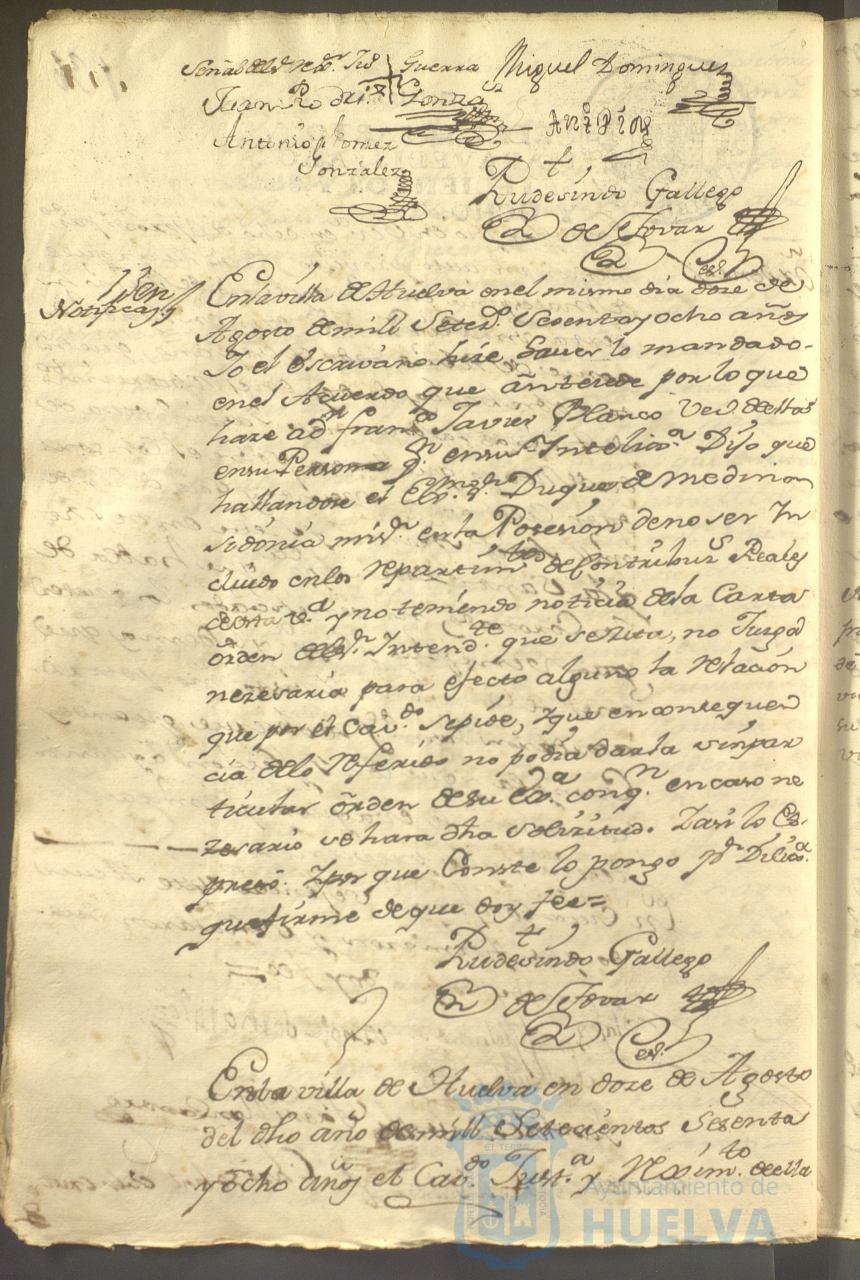 Señal del Sr. Rex.or Jsd + Guerra Miguel Dominguez
Juan Rodri.z Gonza.z
Antonio Gomez
Gonzalez
Ante mi
Rudesindo Gallego
de Setovar
es.no
Notificaz.n
En la villa de Huelva en el mismo dia doze de
Agosto de mill Seteз. Sesenta y ocho años
Yo el escrivano hize saver lo mandado
en el Acuerdo que antezede por lo que
haze a d.n fran.co Javier Blanco Vez.o de ella
en su Persona q.n en su Intelix.a Dijo que
hallandose el Ex.mo S.r Duque de Medina
Sidonia mi s.r en la Posesion de no ser In
cluido en los repartim.tos de Contribuz.s Reales
de esta v.a y no teniendo noticia de la Carta
orden del S.r Intend.te que se zita, no Juzga
nezesaria para efecto alguno la relazion
que por el Cav.do se pide, y que en consequen
cia de lo referido no podia darla sin par
ticular orden de su ex.a con q.n en caso ne
zesario se hara dha solizitud. Y asi lo Es
preso. Y por que Conste lo pongo p.r Dilix.a
que firme de que doy fee=
Rudesindo Gallego
de Setovar
es.no
En la villa de Huelva en doze de Agosto
del dho año de mill Setecientos Sesenta
y ocho años el Cav.do Just.a y Rexim.to de ella
Ayuntamiento de
HUELVA